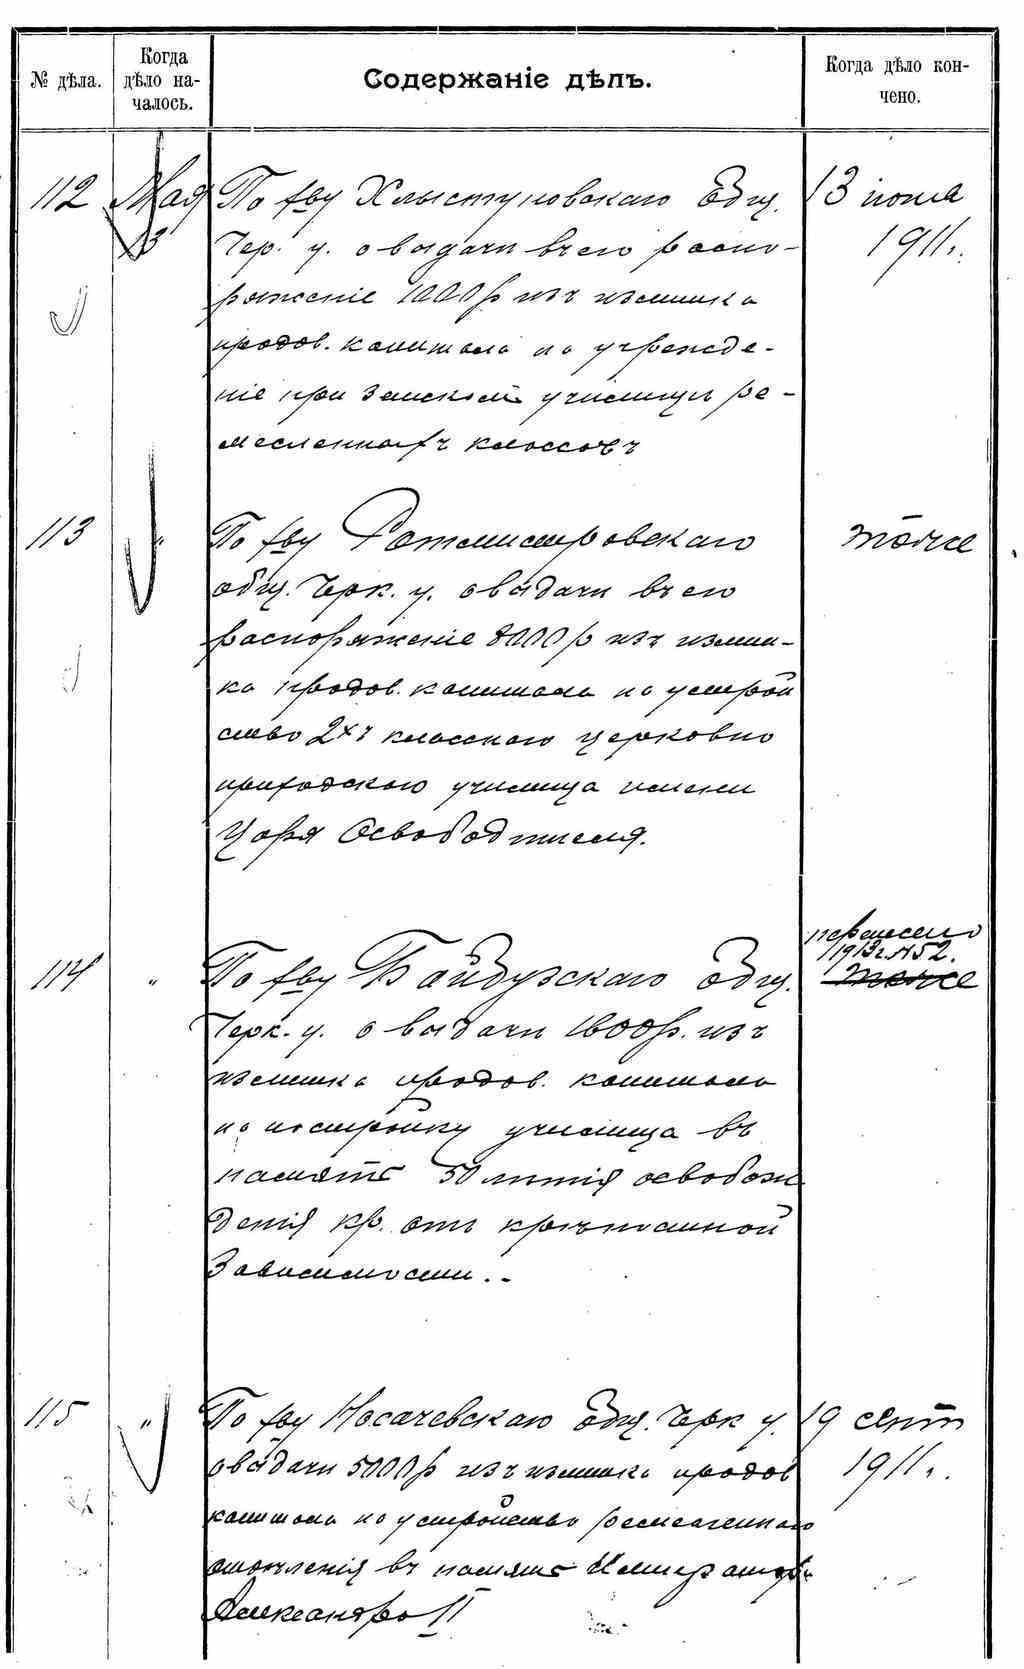 № дѣла.
Когда
дѣло на-
чалось.
Содержаніе дѣлъ.
Когда дѣло кон-
чено.
112 Мая По хву Хлыстуновскаго Общ. 13 іюля
13 Чер. у. о выдачи въ его распо- 1911г.
ряженіе 1000р изъ излишка
продов. капитала на учрежде-
ніе при Земском училищи ре-
месленныхъ классовъ
113 " По хву Ротмистровскаго тоже
общ. Черк. у. о выдачи въ его
распоряженіе 8000р изъ излиш-
ка продов. капитала на устрой
ство 2хъ класснаго церковно
приходскаго училища имени
Царя Освободителя.
перенесено
1913г. №52.
114 " По хву Байбузскаго Общ. тоже
Черк. у. о выдачи 1600р. изъ
излишка продов. капитала
на постройку училища въ
память 50 лѣтія освобож
денія кр. отъ крѣпостной
Зависимости..-
115 " По хву Носачевскаго Общ. Черк у. 19 сент
о выдачи 5000р изъ излишка продов 1911г.
капитала на устройство ремесленнаго
отдѣленія въ память Императора
Александра II